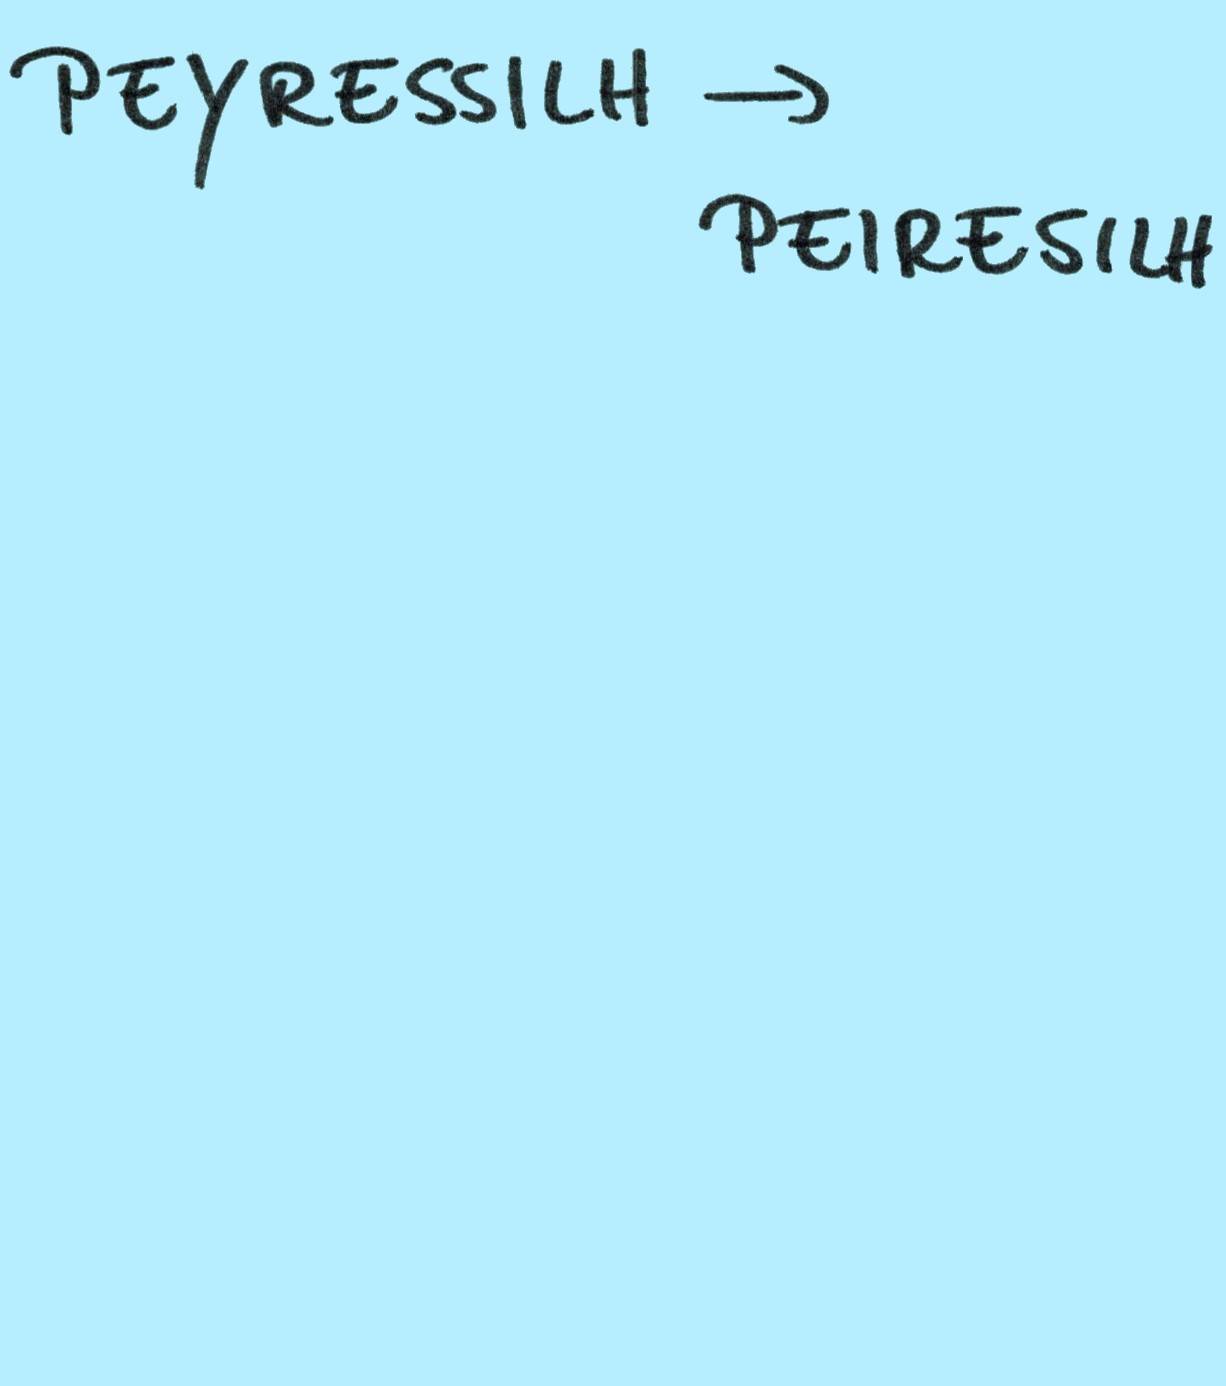 PEYRESSILH →
PEIRESILH